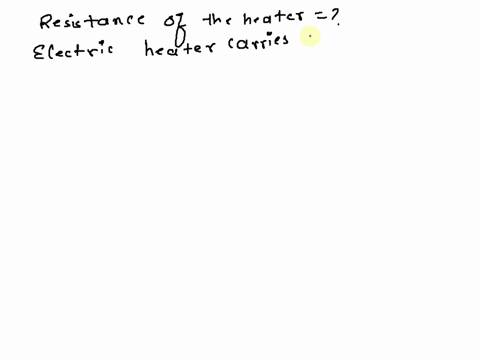 Resistance of the heater = ?
Electric heater carries